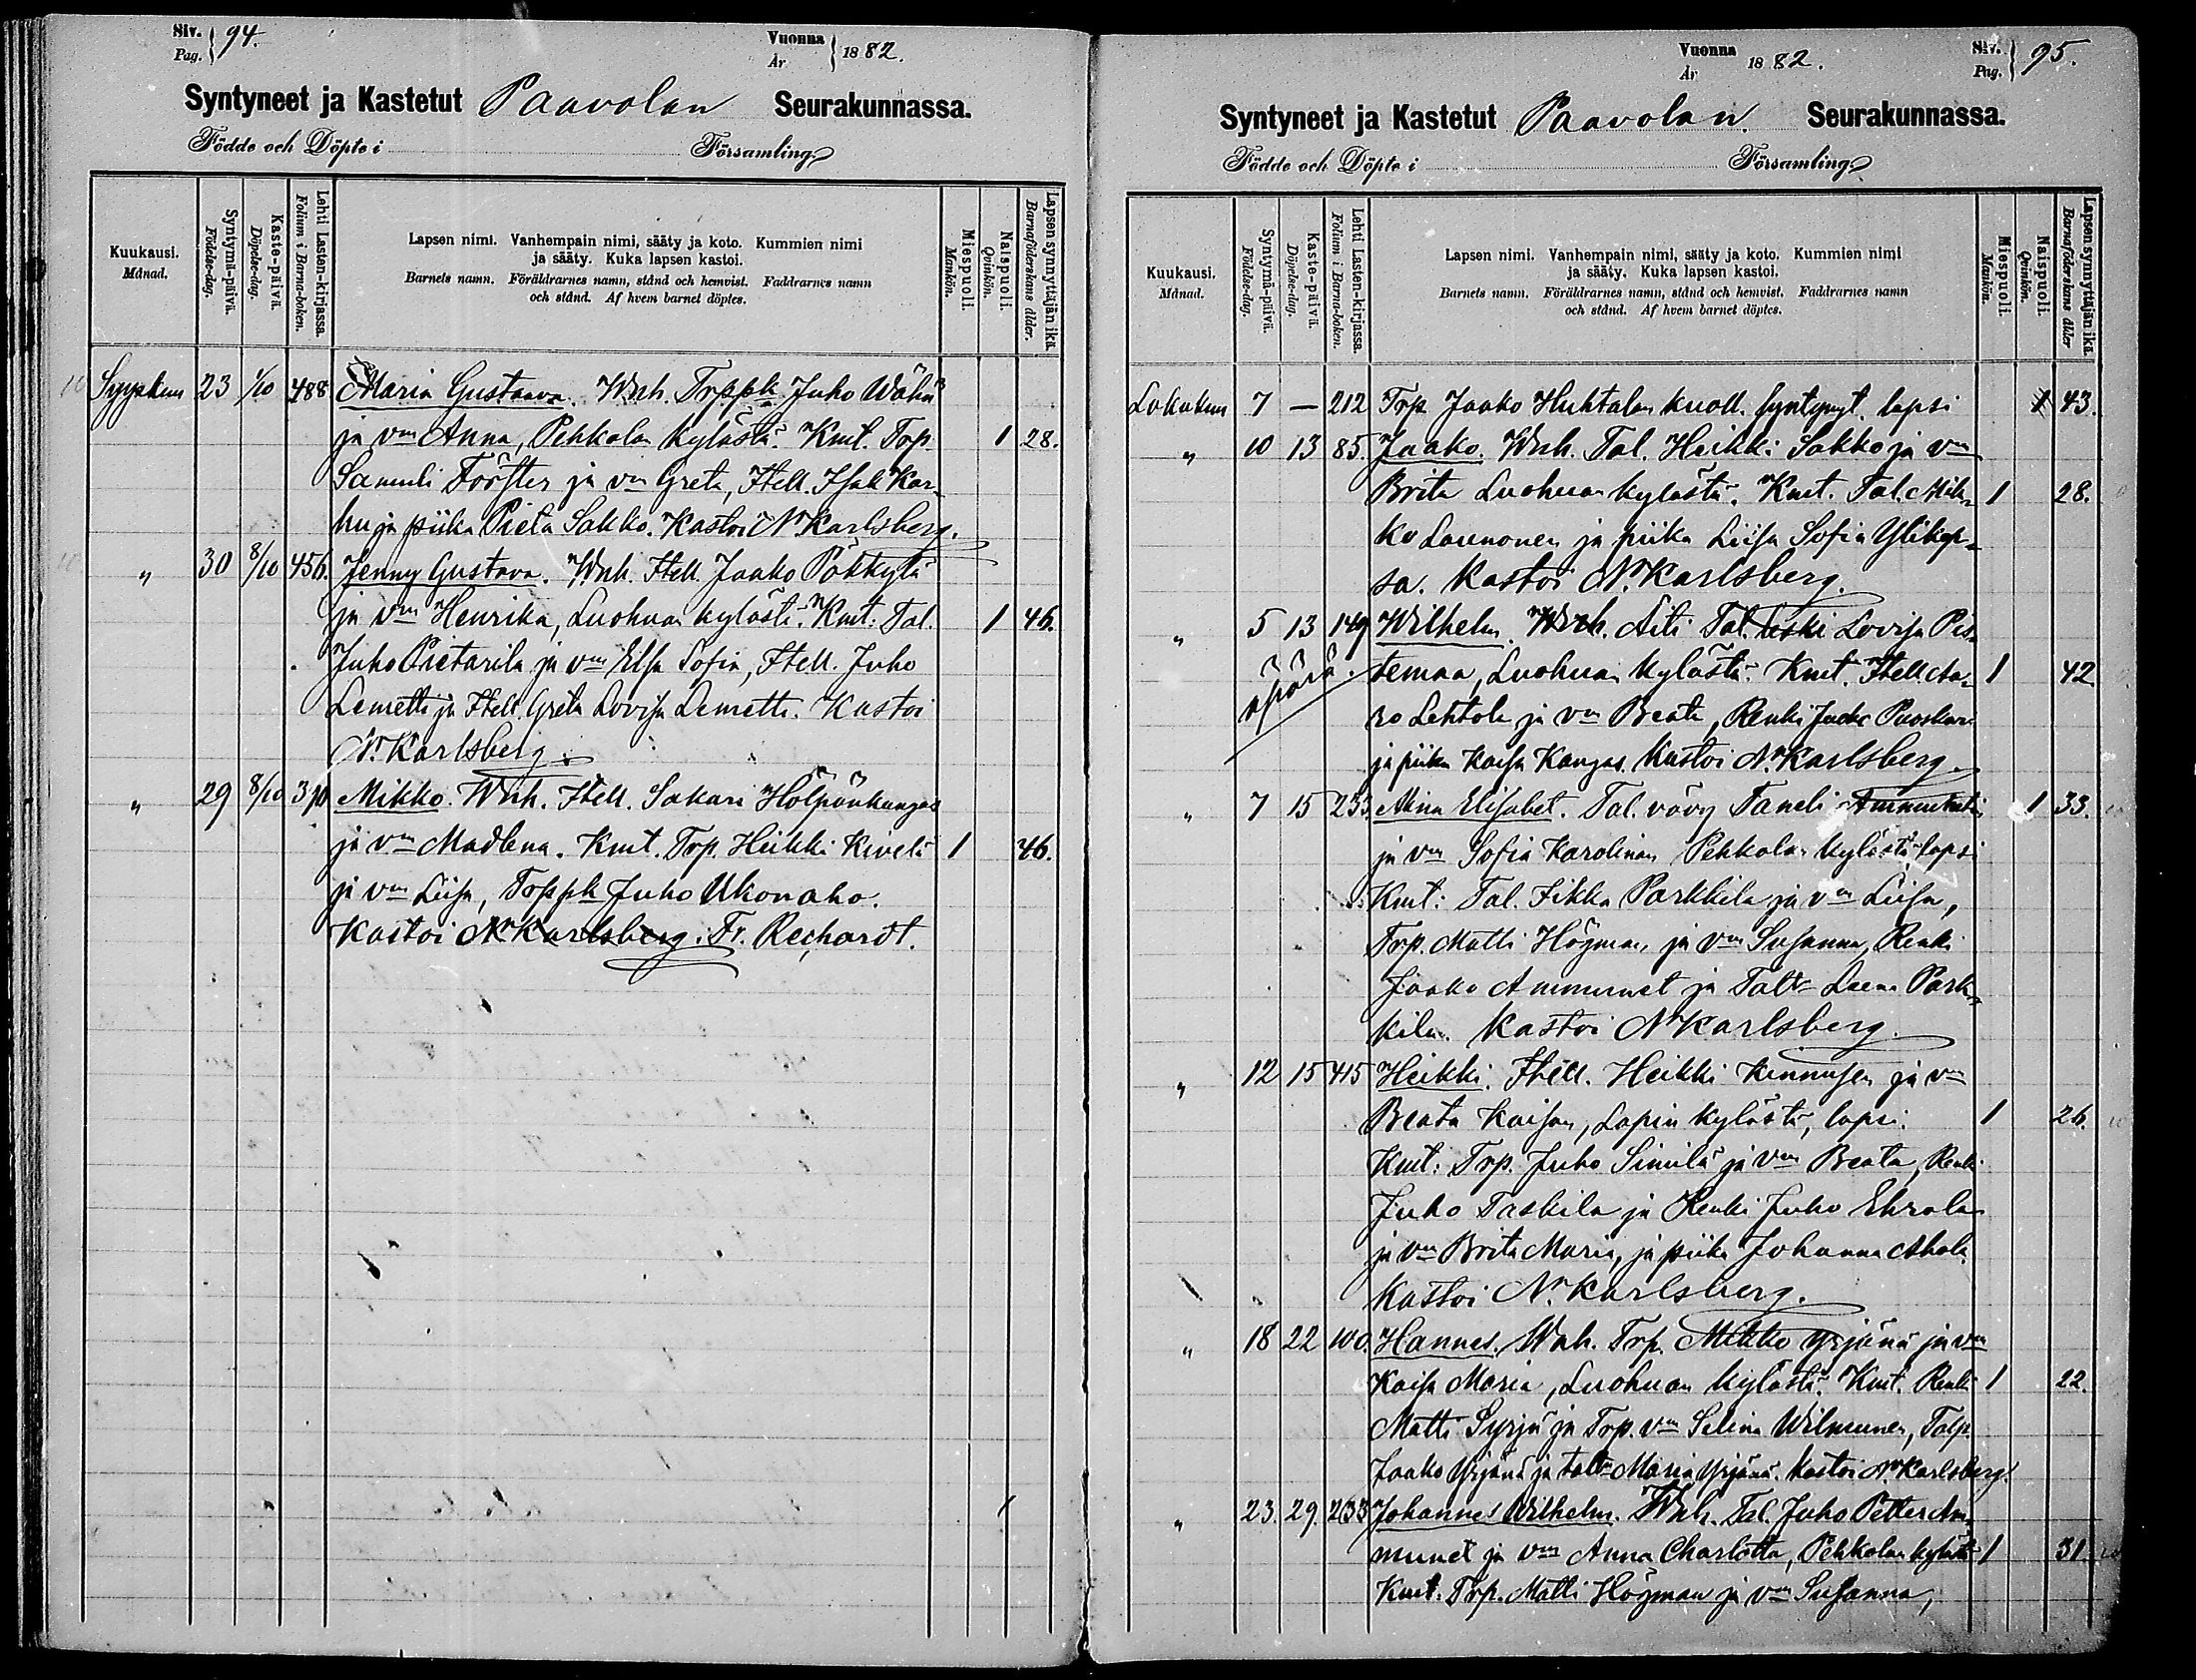 Siv. Pag. } 94.
Vuonna År } 1882.
Syntyneet ja Kastetut Paavolan Seurakunnassa.
Födde och Döpte i Församling
Kuukausi. Månad.
Syntymä-päivä. Födelse-dag.
Kaste-päivä. Döpelse-dag.
Lehti Lasten-kirjassa. Folium i Barna-boken.
Lapsen nimi. Vanhempain nimi, sääty ja koto. Kummien nimi
ja sääty. Kuka lapsen kastoi.
Barnets namn. Föräldrarnes namn, stånd och hemvist. Faddrarnes namn
och stånd. Af hvem barnet döptes.
Miespuoli. Mankön.
Naispuoli. Qvinkön.
Lapsen synnyttäjän ikä. Barnaföderskans ålder.
Syyskuu 23 1/10 488 Maria Gustaava. Wnh. Torppk Juho Wähä
ja vm Anna, Pehkolan kylästä. Kmt. Torp. 1 28.
Samuli Förster ja vm Greta, Itell. Isak Kar-
hu ja piika Pieta Sakko. Kastoi N. Karlsberg.
" 30 8/10 456. Jenny Gustava. Wnh. Itell. Jaako Pökkylä
ja vm Henrika, Luohuan kylästä. Kmt: Tal. 1 46.
Juho Pietarila ja vm Elsa Sofia, Itell. Juho
Lemetti ja Itell. Greta Lovisa Lemetti. Kastoi
N. Karlsberg.
" 29 8/10 310 Mikko. Wnh. Itell. Sakari Hölpönkangas
ja vm Madlena. Kmt. Trp. Heikki Kivelä 1 46.
ja vm Liisa, Torppk Juho Ukonaho.
Kastoi N. Karlsberg. Fr. Rechardt.
Vuonna År 1882.
Siv. Pag. } 95.
Syntyneet ja Kastetut Paavolan. Seurakunnassa.
Födde och Döpte i Församling
Kuukausi. Månad.
Syntymä-päivä. Födelse-dag.
Kaste-päivä. Döpelse-dag.
Lehti Lasten-kirjassa. Folium i Barna-boken.
Lapsen nimi. Vanhempain nimi, sääty ja koto. Kummien nimi
ja sääty. Kuka lapsen kastoi.
Barnets namn. Föräldrarnes namn, stånd och hemvist. Faddrarnes namn
och stånd. Af hvem barnet döptes.
Miespuoli. Mankön.
Naispuoli. Qvinkön.
Lapsen synnyttäjän ikä. Barnaföderskans ålder
Lokakuu 7 — 212 Trp. Jaako Huhtalan kuoll. syntynyt. lapsi 1 43.
" 10 13 85. Jaako. Wnh. Tal. Heikki Sakko ja vm
Brita Luohuan kylästä. Kmt. Tal. Mik- 1 28.
ko Launonen ja piika Liisa Sofia Ylikop-
sa. Kastoi N. Karlsberg.
" 5 13 149 Wilhelm. Wnh. Äiti Tal. leski Lovisa Pis-
äpärä. temaa, Luohuan kylästä. Kmt. Itell. Aa- 1 42.
ro Lehtola ja vm Beata, Renki Puoskari
ja piika Kaisa Kangas. Kastoi N. Karlsberg.
" 7 15 233 Mina Elisabet. Tal. vävy Taneli Ammuntin 1 33.
ja vm Sofia Karolinan Pehkolan kylästä lapsi
Kmt: Tal. Fikka Parkkila ja vm Liisa,
Trp. Matti Högman ja vm Susanna, Renki
Jaako Ammunet ja Talv Leena Park-
kila. Kastoi N. Karlsberg.
" 12 15 415 Heikki. Itell. Heikki Kinnusen ja vm
Beata Kaisan, Lapin kylästä, lapsi. 1 26.
Kmt: Trp. Juho Similä ja vm Beata, Renki
Juho Taskila ja Renki Juho Ehrola
ja vm Brita Maria, ja piika Johanna Ahola
Kastoi N. Karlsberg.
" 18 22 100. Hannes. Wnh. Trp. Mikko Yrjänä ja vm
Kaisa Maria, Luohuan kylästä. Kmt. Renki 1 22.
Matti Syrjä ja Trp. vm Selina Wilmunen, Talp
Jaako Yrjänä ja talv Maria Yrjänä. Kastoi N. Karlsberg.
" 23. 29. 233 Johannes Wilhelm. Wnh. Tal. Juho Petter Am-
munet ja vm Anna Charlotta, Pehkolan kylästä 1 31
Kmt: Trp. Matti Högman ja vm Susanna,